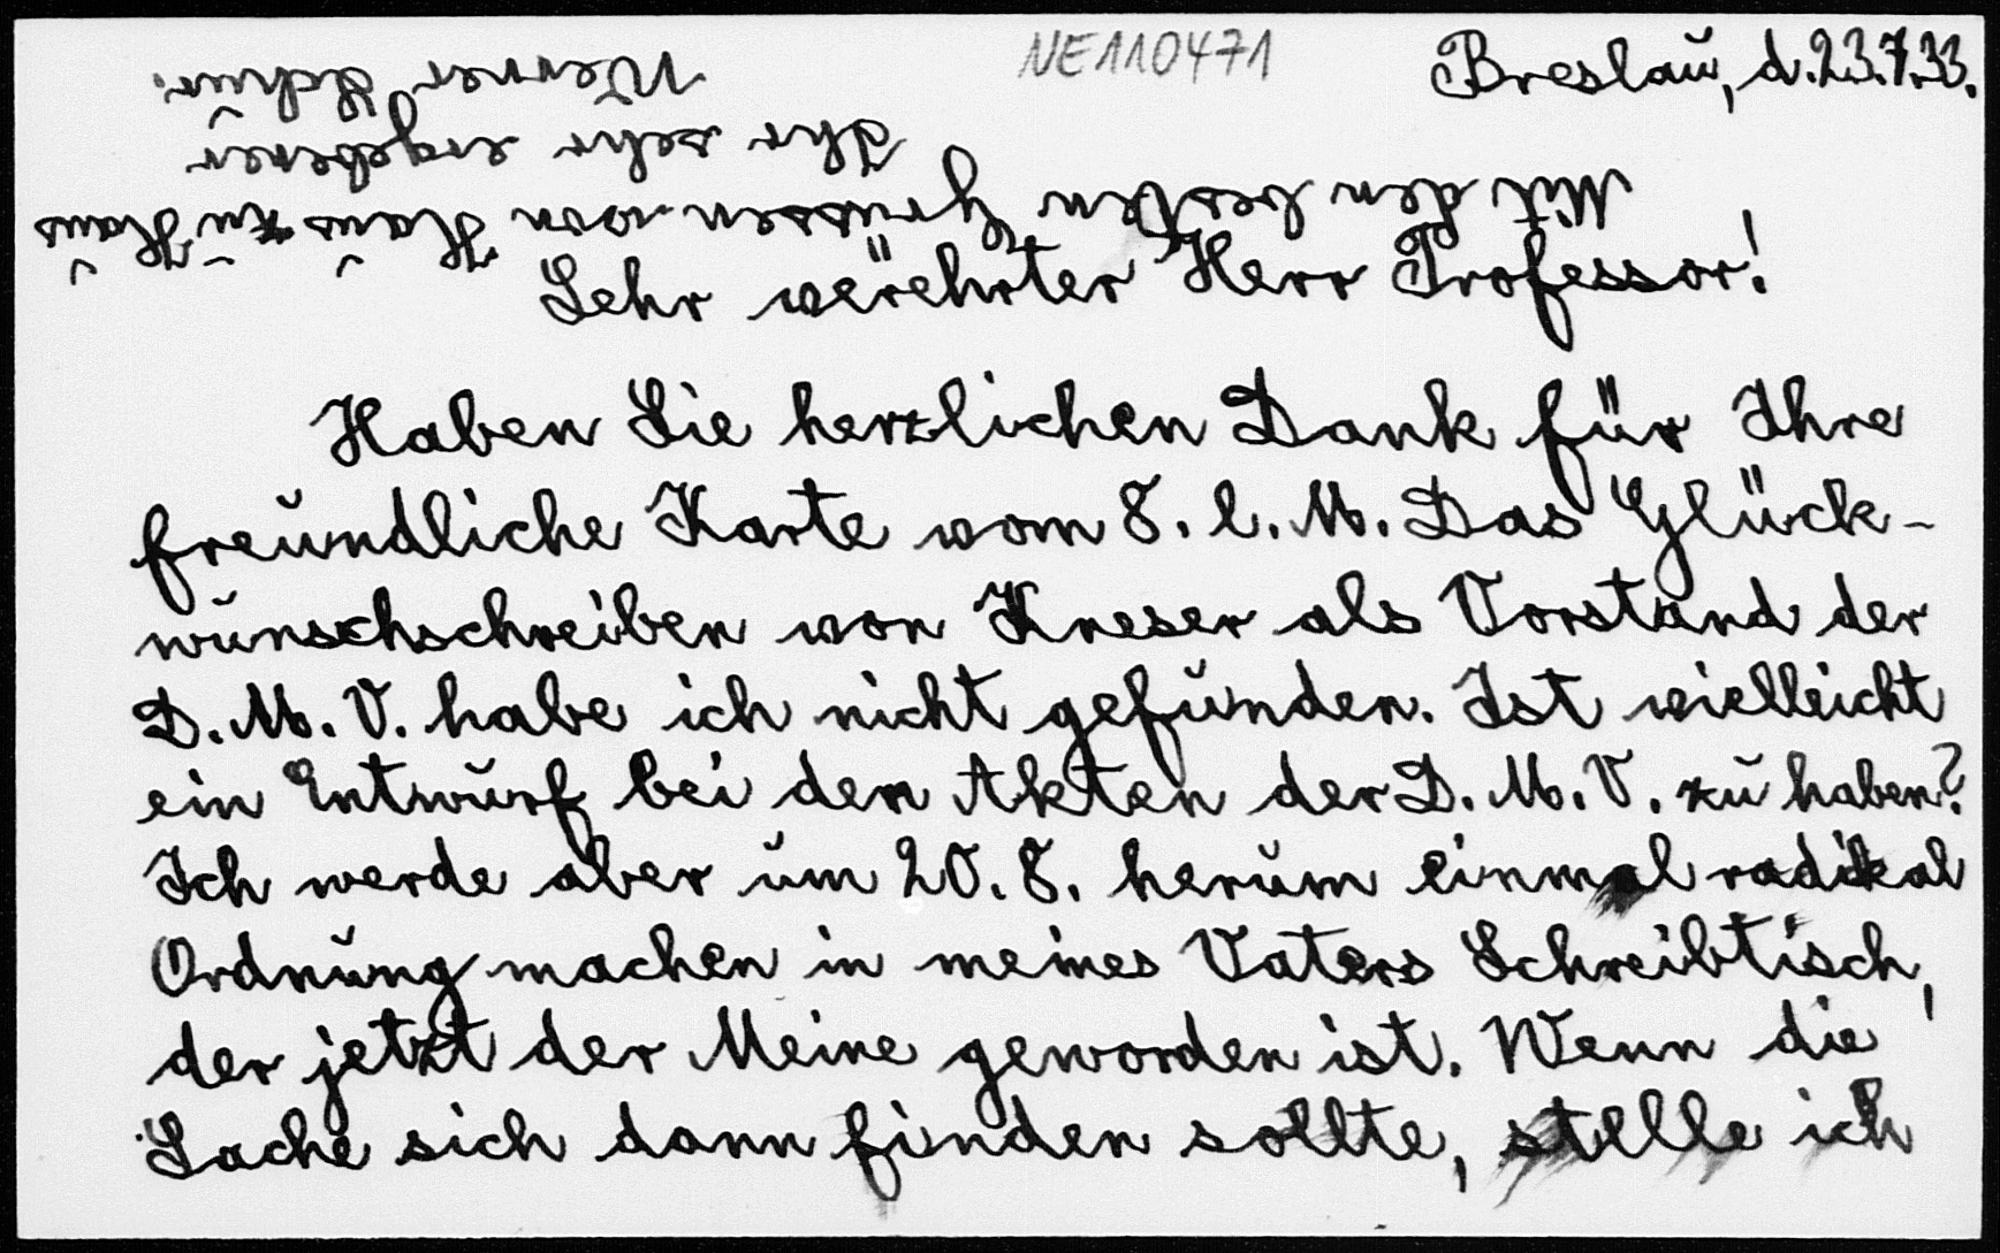 NE110471
Breslau, d. 23.7.33.
Sehr verehrter Herr Professor!
Haben Sie herzlichen Dank für Ihre
freundliche Karte vom 8. l. M. Das Glück-
wunschschreiben von Kneser als Vorstand der
D. M. V. habe ich nicht gefunden. Ist vielleicht
ein Entwurf bei den Akten der D. M. V. zu haben?
Ich werde aber um 20. 8. herum einmal radikal
Ordnung machen in meines Vaters Schreibtisch,
der jetzt der Meine geworden ist. Wenn die
Sache sich dann finden sollte, stelle ich
Mit den besten Grüssen von Haus zu Haus
Ihr sehr ergebener
Werner Schur.